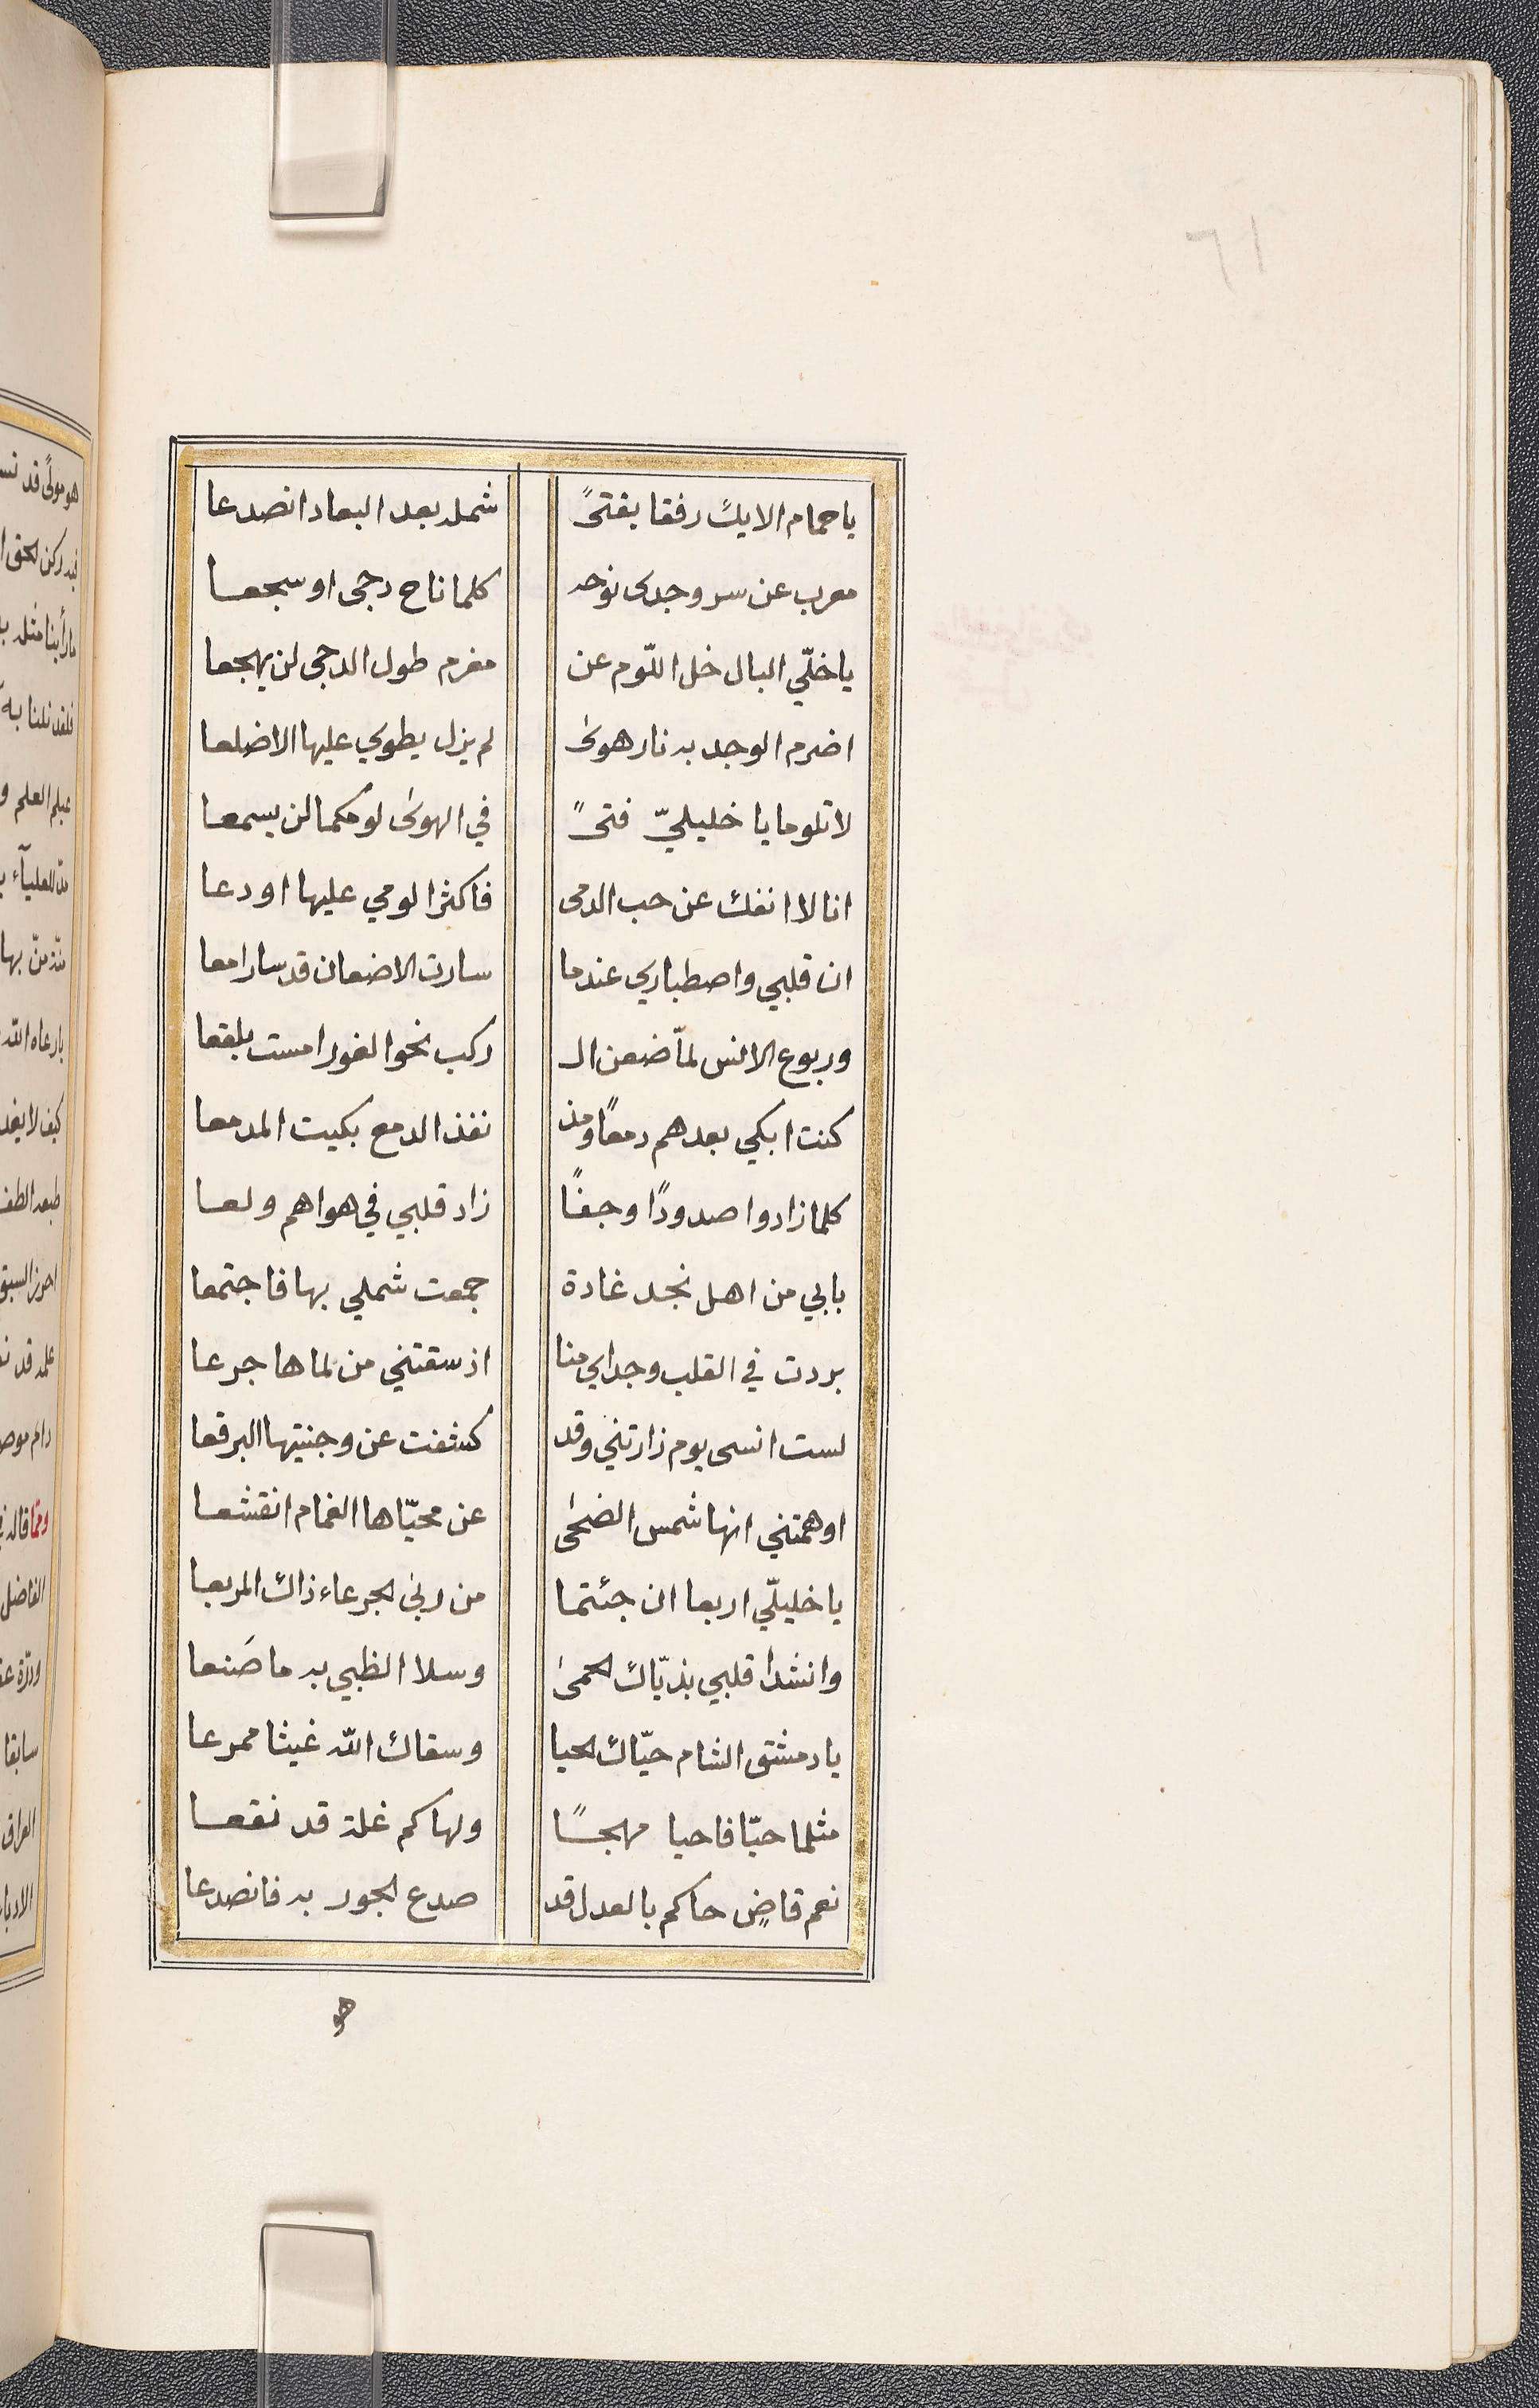 ٦١
يا حمام الايك رفقا بفتىً شمله بعد البعاد انصدعا
معرب عن سر وجدى نوحه كلما ناح دجى او سجعا
يا خلّي البال خل اللّوم عن مغرم طول الدجى لن يهجعا
اضرم الوجد به نار هوىٰ لم يزل يطوي عليها الاضلعا
لا تلوما يا خليليّ فتىً في الهوىٰ لومكما لن يسمعا
انا لا انفك عن حب الدمى فاكثرا لومي عليها او دعا
ان قلبي واصطباري عندما سارت الاضعان قد سارا معا
وربوع الانس لمّا ضعن الـ ركب نحو الغور امست بلقعا
كنت ابكي بعدهم دمعًا ومذ نفذ الدمع بكيت المدمعا
كلما زادوا صدودًا وجفًا زاد قلبي في هواهم ولعا
بابي من اهل نجد غادة جمعت شملي بها فاجتمعا
بردت في القلب وجدا مي منا اذ سقتني من لماها جرعا
لست انسى يوم زارتني وقد كشفت عن وجنتيها البرقعا
اوهمتني انها شمس الضحىٰ عن محيّاها الغمام انقشعا
يا خليلّي اربعا ان جئتما من ربى الجرعاء ذاك المربعا
وانشدا قلبي بذيّاك الحمىٰ وسلا الظبي به ما صَنعا
يا دمشق الشام حيّاك الحيا وسقاك الله غيثا ممرعا
مثلما حيّا فاحيا مهجًا ولها كم غلة قد نقعا
نعم قاضٍ حاكم بالعدل قد صدع الجور به فانصدعا
هو